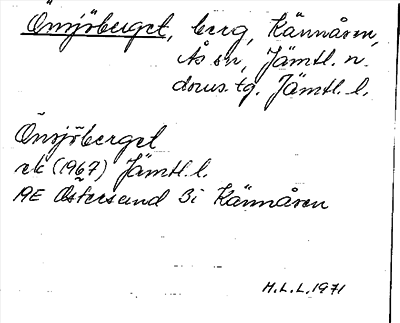 Önsjöberget, berg, Kännåsen,
Ås sn, Jämtl. n.
doms.tg. Jämtl. l.
Önsjöberget
rek (1967) Jämtl. l.
19E Östersund 3i Kännåsen
H.L.L. 1971